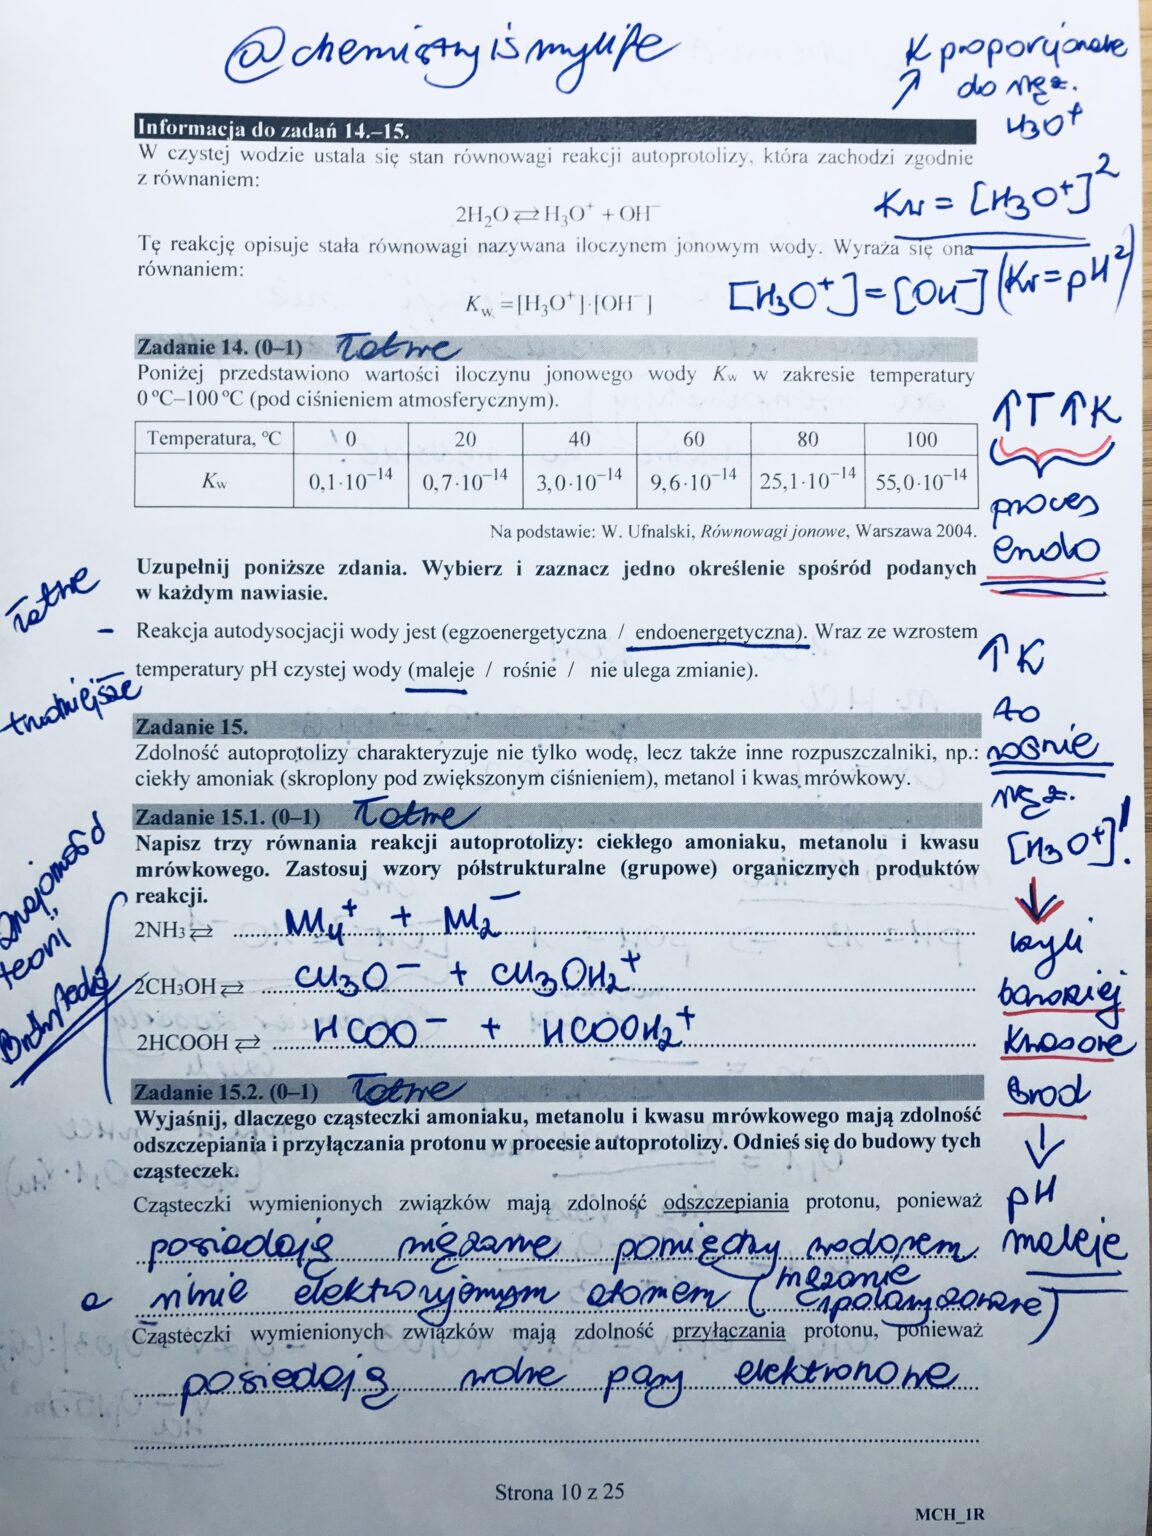 @chemistryismylife
K proporcjonalne
↗ do stęż.
H3O+
Informacja do zadań 14.–15.
W czystej wodzie ustala się stan równowagi reakcji autoprotolizy, która zachodzi zgodnie
z równaniem:
2H₂O ⇄ H₃O⁺ + OH⁻
Kw = [H3O+]²
Tę reakcję opisuje stała równowagi nazywana iloczynem jonowym wody. Wyraża się ona
równaniem:
[H3O+] = [OH-] (Kw = pH²)
Kw = [H₃O⁺]·[OH⁻]
Zadanie 14. (0–1) Łatwe
Poniżej przedstawiono wartości iloczynu jonowego wody Kw w zakresie temperatury
0 °C–100 °C (pod ciśnieniem atmosferycznym).
Temperatura, °C 0 20 40 60 80 100
Kw 0,1·10⁻¹⁴ 0,7·10⁻¹⁴ 3,0·10⁻¹⁴ 9,6·10⁻¹⁴ 25,1·10⁻¹⁴ 55,0·10⁻¹⁴
Na podstawie: W. Ufnalski, Równowagi jonowe, Warszawa 2004.
↑T ↑K
proces
endo
Uzupełnij poniższe zdania. Wybierz i zaznacz jedno określenie spośród podanych
w każdym nawiasie.
łatwe
– Reakcja autodysocjacji wody jest (egzoenergetyczna / endoenergetyczna). Wraz ze wzrostem
temperatury pH czystej wody (maleje / rośnie / nie ulega zmianie).
trudniejsze
↑K
to
rośnie
stęż.
[H3O+]!
↓
czyli
bardziej
kwasowe
środ
↓
pH
maleje
Zadanie 15.
Zdolność autoprotolizy charakteryzuje nie tylko wodę, lecz także inne rozpuszczalniki, np.:
ciekły amoniak (skroplony pod zwiększonym ciśnieniem), metanol i kwas mrówkowy.
Zadanie 15.1. (0–1) Łatwe
Napisz trzy równania reakcji autoprotolizy: ciekłego amoniaku, metanolu i kwasu
mrówkowego. Zastosuj wzory półstrukturalne (grupowe) organicznych produktów
reakcji.
znajomość
teorii
Brønsteda
2NH₃ ⇄ NH4+ + NH2-
2CH₃OH ⇄ CH3O- + CH3OH2+
2HCOOH ⇄ HCOO- + HCOOH2+
Zadanie 15.2. (0–1) Łatwe
Wyjaśnij, dlaczego cząsteczki amoniaku, metanolu i kwasu mrówkowego mają zdolność
odszczepiania i przyłączania protonu w procesie autoprotolizy. Odnieś się do budowy tych
cząsteczek.
Cząsteczki wymienionych związków mają zdolność odszczepiania protonu, ponieważ
posiadają wiązanie pomiędzy wodorem
a silnie elektroujemnym atomem (wiązanie spolaryzowane)
Cząsteczki wymienionych związków mają zdolność przyłączania protonu, ponieważ
posiadają wolne pary elektronowe
Strona 10 z 25
MCH_1R